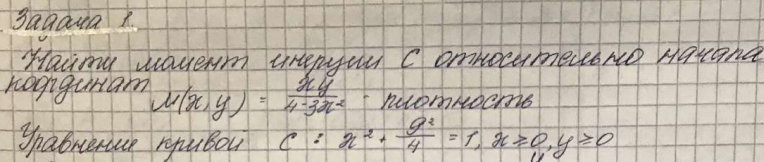 Задача 1.
Найти момент инерции C относительно начала
координат
μ(x, y) = xy / (4-3x²) - плотность
Уравнение кривой C : x² + y²/4 = 1, x ≥ 0, y ≥ 0